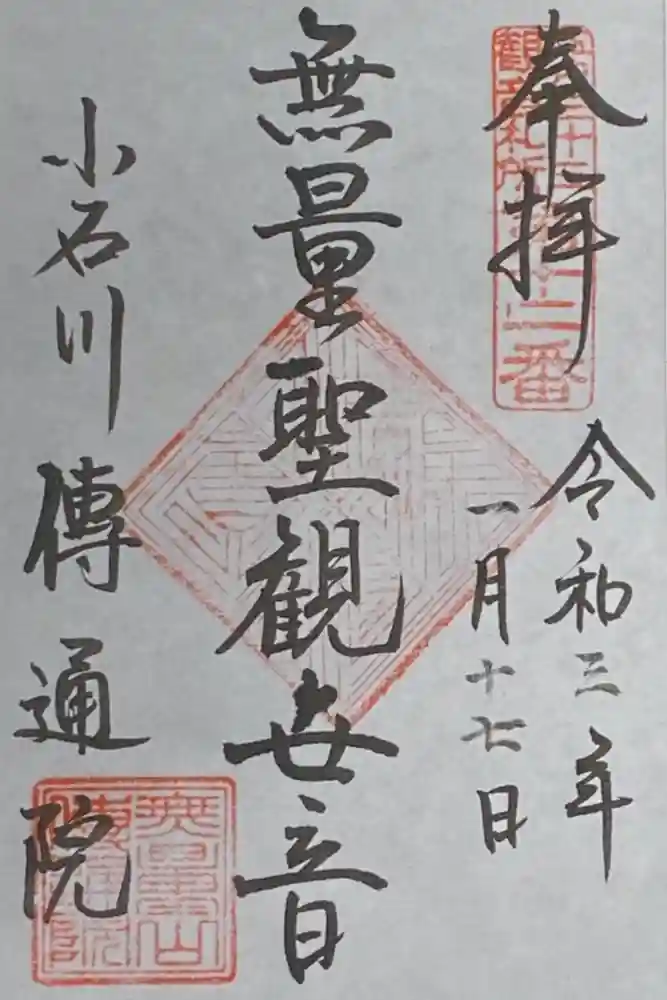 奉拝
江戸三十三
觀音札所
第十二番
令和三年
一月十七日
無量聖観世音
小石川傳通院
無量山
傳通院